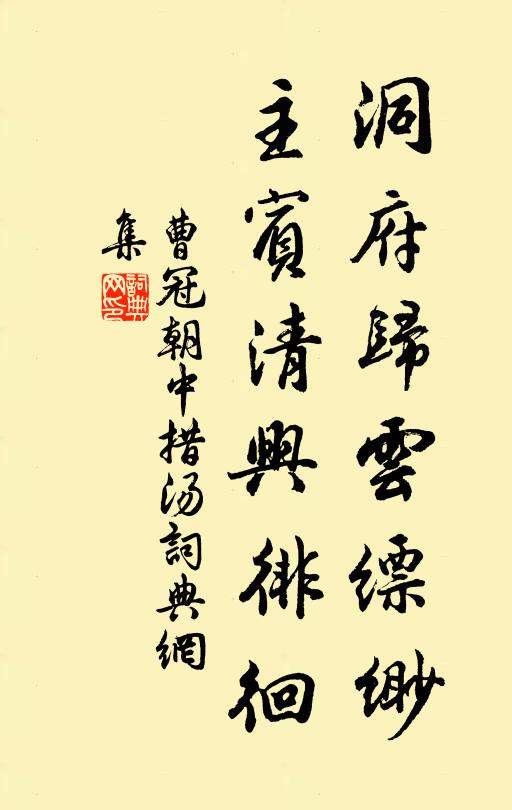 洞府歸雲縹緲
主賓清興徘徊
曹冠朝中措汤詞典網
集
詞典网印